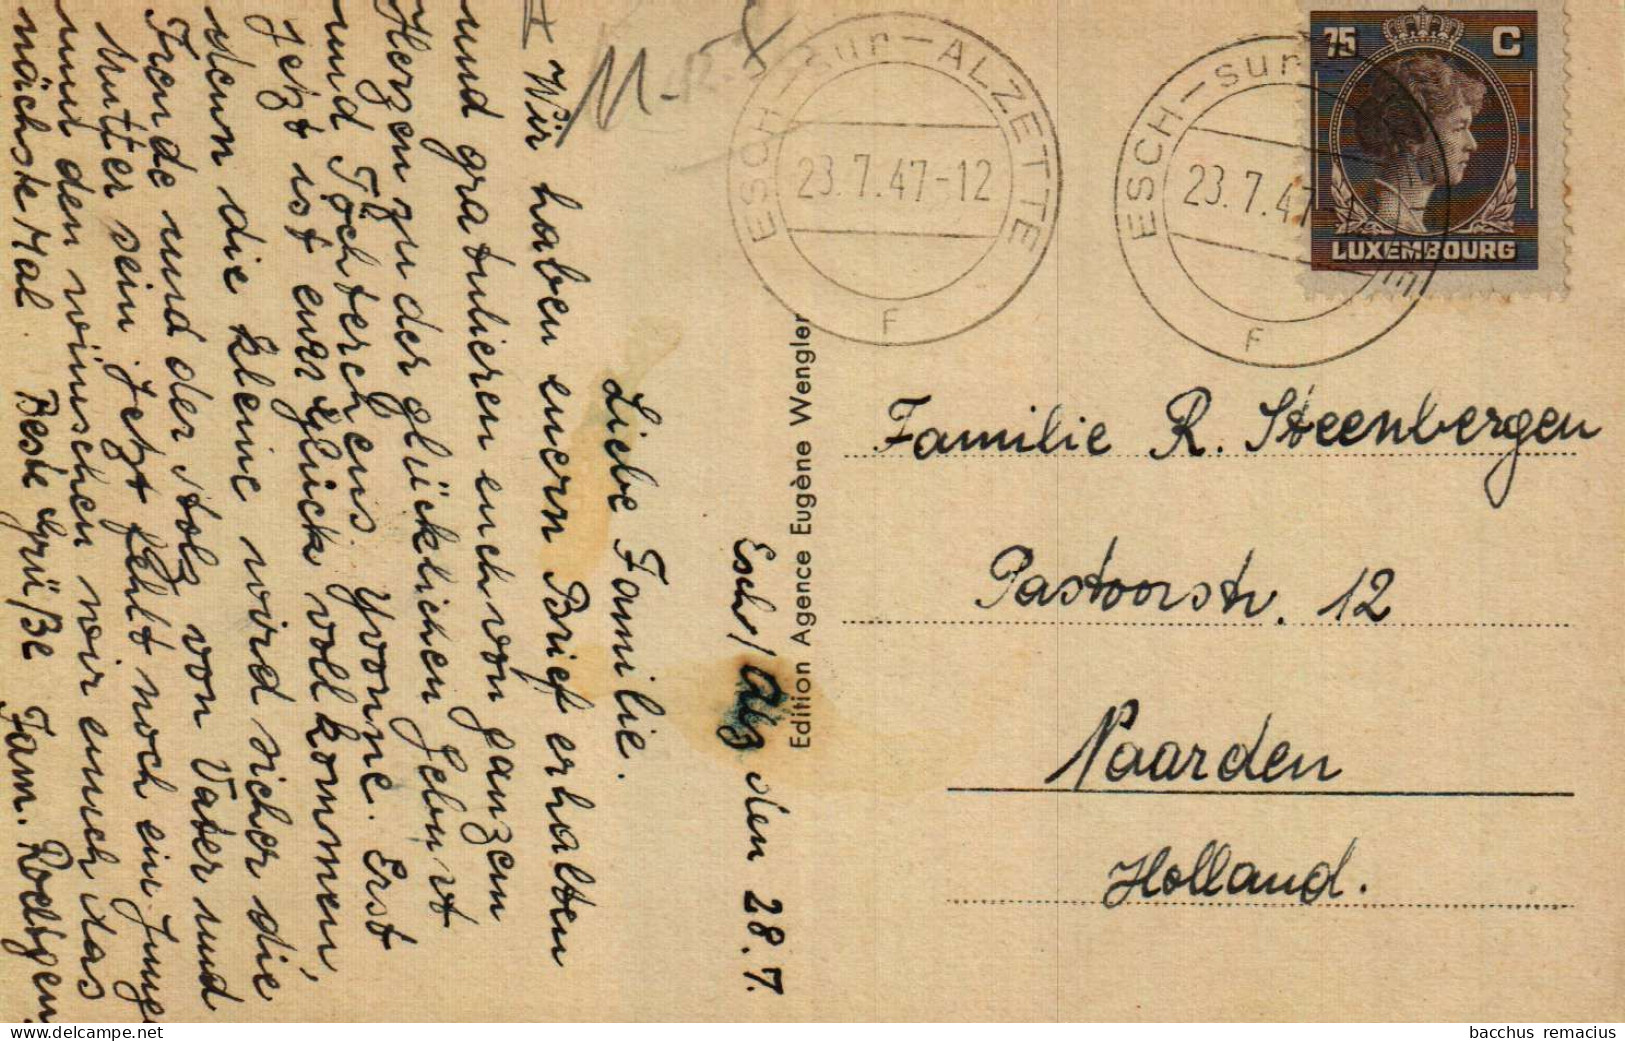 Esch/Alz den 28.7.
Liebe Familie.
Wir haben euern Brief erhalten
und gratulieren euch von ganzem
Herzen zu der glücklichen Geburt
und Töchterchens Yvonne. Erst
Jetzt ist euer Glück vollkommen,
denn die kleine wird sicher die
Freude und der Stolz von Vater und
Mutter sein. Jetzt fehlt noch ein Junge
und den wünschen wir euch das
nächste Mal. Beste Grüße Fam. Roettgen
Edition Agence Eugène Wengler
ESCH-sur-ALZETTE
23.7.47-12
F
ESCH-sur
23.7.47
F
75 C
LUXEMBOURG
Familie R. Steenbergen
Pastoorstr. 12
Naarden
Holland.
bacchus remacius
delcampe.net